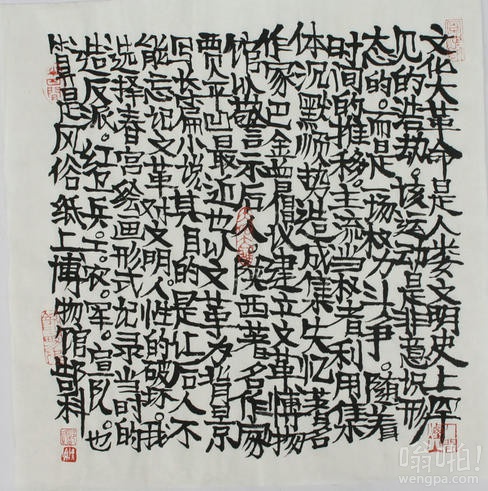 文化大革命是人类文明史上罕
见的浩劫。该运动是非意识形
态的。而是一场权力斗争。随着
时间的推移。主流当权者利用集
体沉默顺势造成集失忆。著名
作家巴金曾倡议建立文革博物
馆以警示后人。陕西著名作家
贾平凹最近也以文革为背景
写长篇小说。其目的是让后人不
能忘记文革对文明。人性的破坏。我
选择春宫绘画形式记录当时的
造反派。红卫兵。工。农。军。宣队。也
算是风俗纸上博物馆
嗡啪!
wengpa.com